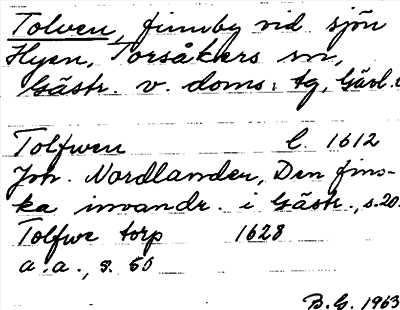 Tolven, finnby vid sjön
Hyen, Torsåkers sn,
Gästr. v. doms. tg, Gävl.
Tolfwen l. 1612
Joh. Nordlander, Den fins-
ka invandr. i Gästr., s. 20.
Tolfwe torp 1628
a.a., s. 60
B.G. 1963